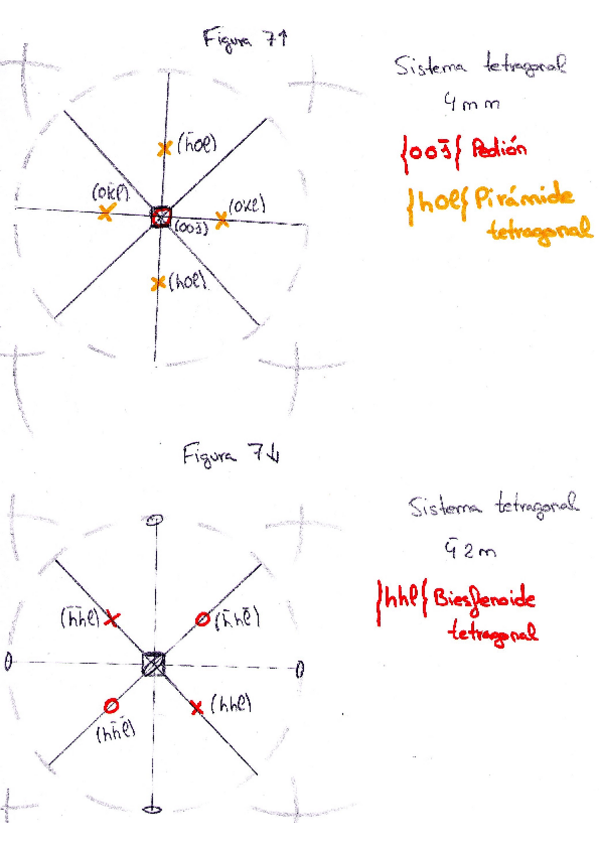 Figura 7↑
Sistema tetragonal
4mm
{001̄{ Pedión
{h0l{ Pirámide
tetragonal
(h̄0l)
(0k̄l)
(0kl)
(001̄)
(h0l)
Figura 7↓
Sistema tetragonal
4̄2m
{hhl{ Biesfenoide
tetragonal
(h̄h̄l)
(h̄hl̄)
(hh̄l̄)
(hhl)